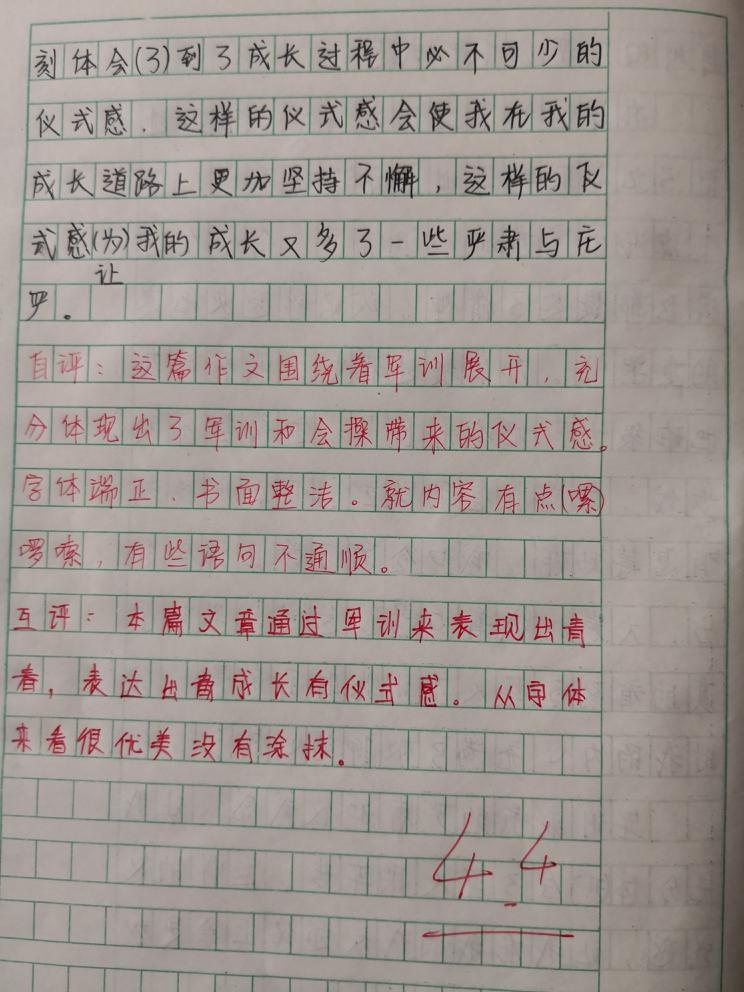 刻体会(了)到了成长过程中必不可少的
仪式感．这样的仪式感会使我在我的
成长道路上更加坚持不懈，这样的仪
式感(为)我的成长又多了一些严肃与庄
让
严。
自评：这篇作文围绕着军训展开，充
分体现出了军训和会操带来的仪式感。
字体端正、书面整洁。就内容有点(嗦)
啰嗦，有些语句不通顺。
互评：本篇文章通过军训来表现出青
春，表达出青成长有仪式感。从字体
来看很优美没有涂抹。
44